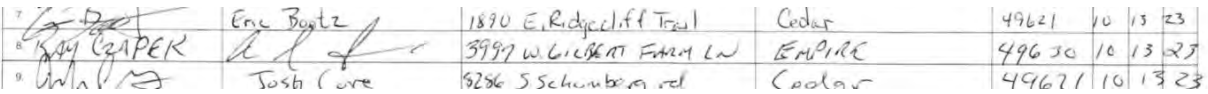 7. Eric Bootz 1890 E. Ridgecliff Trail Cedar 49621 10 13 23
8. KAY CZAPEK 3997 W. GILBERT FARM LN EMPIRE 49630 10 13 23
9. Josh Core 8286 S Schomberg rd Cedar 49621 10 13 23